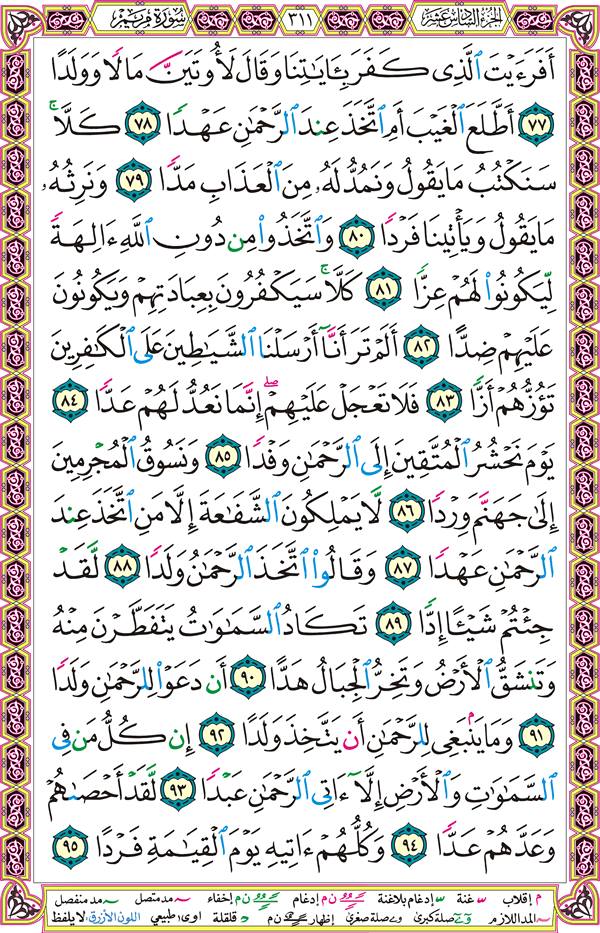 الجزء السادس عشر ٣١١ سورة مريم
أَفَرَءَيْتَ ٱلَّذِى كَفَرَ بِـَٔايَـٰتِنَا وَقَالَ لَأُوتَيَنَّ مَالًا وَوَلَدًا
٧٧ أَطَّلَعَ ٱلْغَيْبَ أَمِ ٱتَّخَذَ عِندَ ٱلرَّحْمَـٰنِ عَهْدًا ٧٨ كَلَّا ۚ
سَنَكْتُبُ مَا يَقُولُ وَنَمُدُّ لَهُۥ مِنَ ٱلْعَذَابِ مَدًّا ٧٩ وَنَرِثُهُۥ
مَا يَقُولُ وَيَأْتِينَا فَرْدًا ٨٠ وَٱتَّخَذُوا۟ مِن دُونِ ٱللَّهِ ءَالِهَةً
لِّيَكُونُوا۟ لَهُمْ عِزًّا ٨١ كَلَّا ۚ سَيَكْفُرُونَ بِعِبَادَتِهِمْ وَيَكُونُونَ
عَلَيْهِمْ ضِدًّا ٨٢ أَلَمْ تَرَ أَنَّآ أَرْسَلْنَا ٱلشَّيَـٰطِينَ عَلَى ٱلْكَـٰفِرِينَ
تَؤُزُّهُمْ أَزًّا ٨٣ فَلَا تَعْجَلْ عَلَيْهِمْ ۖ إِنَّمَا نَعُدُّ لَهُمْ عَدًّا ٨٤
يَوْمَ نَحْشُرُ ٱلْمُتَّقِينَ إِلَى ٱلرَّحْمَـٰنِ وَفْدًا ٨٥ وَنَسُوقُ ٱلْمُجْرِمِينَ
إِلَىٰ جَهَنَّمَ وِرْدًا ٨٦ لَّا يَمْلِكُونَ ٱلشَّفَـٰعَةَ إِلَّا مَنِ ٱتَّخَذَ عِندَ
ٱلرَّحْمَـٰنِ عَهْدًا ٨٧ وَقَالُوا۟ ٱتَّخَذَ ٱلرَّحْمَـٰنُ وَلَدًا ٨٨ لَّقَدْ
جِئْتُمْ شَيْـًٔا إِدًّا ٨٩ تَكَادُ ٱلسَّمَـٰوَٰتُ يَتَفَطَّرْنَ مِنْهُ
وَتَنشَقُّ ٱلْأَرْضُ وَتَخِرُّ ٱلْجِبَالُ هَدًّا ٩٠ أَن دَعَوْا۟ لِلرَّحْمَـٰنِ وَلَدًا
٩١ وَمَا يَنۢبَغِى لِلرَّحْمَـٰنِ أَن يَتَّخِذَ وَلَدًا ٩٢ إِن كُلُّ مَن فِى
ٱلسَّمَـٰوَٰتِ وَٱلْأَرْضِ إِلَّآ ءَاتِى ٱلرَّحْمَـٰنِ عَبْدًا ٩٣ لَّقَدْ أَحْصَىٰهُمْ
وَعَدَّهُمْ عَدًّا ٩٤ وَكُلُّهُمْ ءَاتِيهِ يَوْمَ ٱلْقِيَـٰمَةِ فَرْدًا ٩٥
م إقلاب غنة إدغام بلاغنة ن م إدغام ن م إخفاء مد متصل مد منفصل
المد اللازم صلة كبرى صلة صغرى إظهار ن م قلقلة اوى طبيعي اللون الأزرق: لا يلفظ